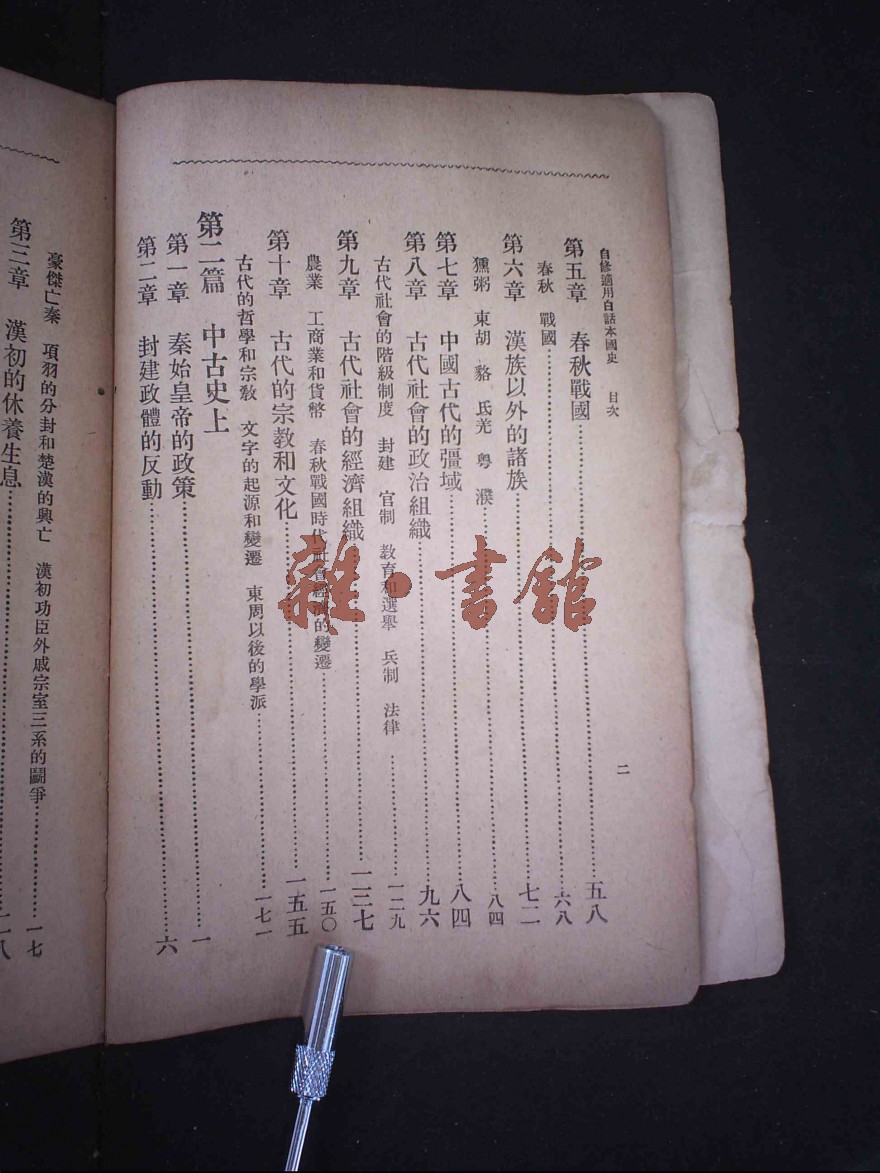 自修適用白話本國史　目次
二
第五章　春秋戰國……五八
春秋　戰國……六八
第六章　漢族以外的諸族……七二
獯粥　東胡　貉　氐羌　粤　濮……八四
第七章　中國古代的彊域……八四
第八章　古代社會的政治組織……九六
古代社會的階級制度　封建　官制　教育和選舉　兵制　法律……一二九
第九章　古代社會的經濟組織……一三七
農業　工商業和貨幣　春秋戰國時代社會經濟的變遷……一五〇
第十章　古代的宗教和文化……一五五
古代的哲學和宗教　文字的起源和變遷　東周以後的學派……一七一
第二篇　中古史上
第一章　秦始皇帝的政策……一
第二章　封建政體的反動……六
豪傑亡秦　項羽的分封和楚漢的興亡　漢初功臣外戚宗室三系的鬭爭……一七
第三章　漢初的休養生息……二八
雜·書館